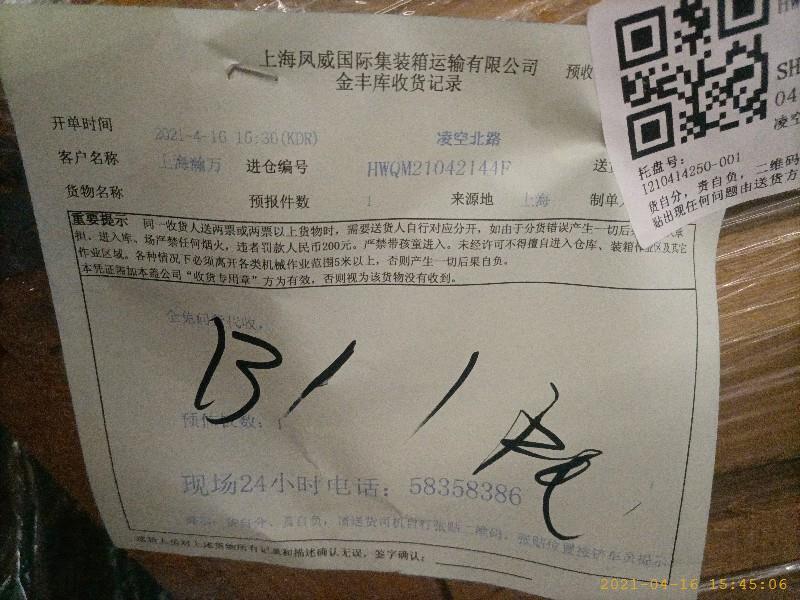 上海凤威国际集装箱运输有限公司
预收
金丰库收货记录
开单时间
2021-4-16 15:36(KDR)
凌空北路
客户名称
上海瀚万
进仓编号
HWQM21042144F
货物名称
预报件数
1
来源地
上海
制单人
重要提示 同一收货人送两票或两票以上货物时,需要送货人自行对应分开,如由于分货错误产生一切后
担、进入库、场严禁任何烟火,违者罚款人民币200元。严禁带孩童进入。未经许可不得擅自进入仓库、装箱作业区及其它
作业区域。各种情况下必须离开各类机械作业范围5米以上,否则产生一切后果自负。
本凭证须加本公司“收货专用章”方为有效,否则视为该货物没有收到。
B1 1
现场24小时电话:58358386
责自负,请送货司机自行张贴二维码,张贴位置
送货人员对上述货物所有记录和描述确认无误,签字确认:
SH
04
凌空
托盘号:
1210414250-001
货自分,责自负,二维码
贴出现任何问题由送货方
2021-04-16 15:45:06